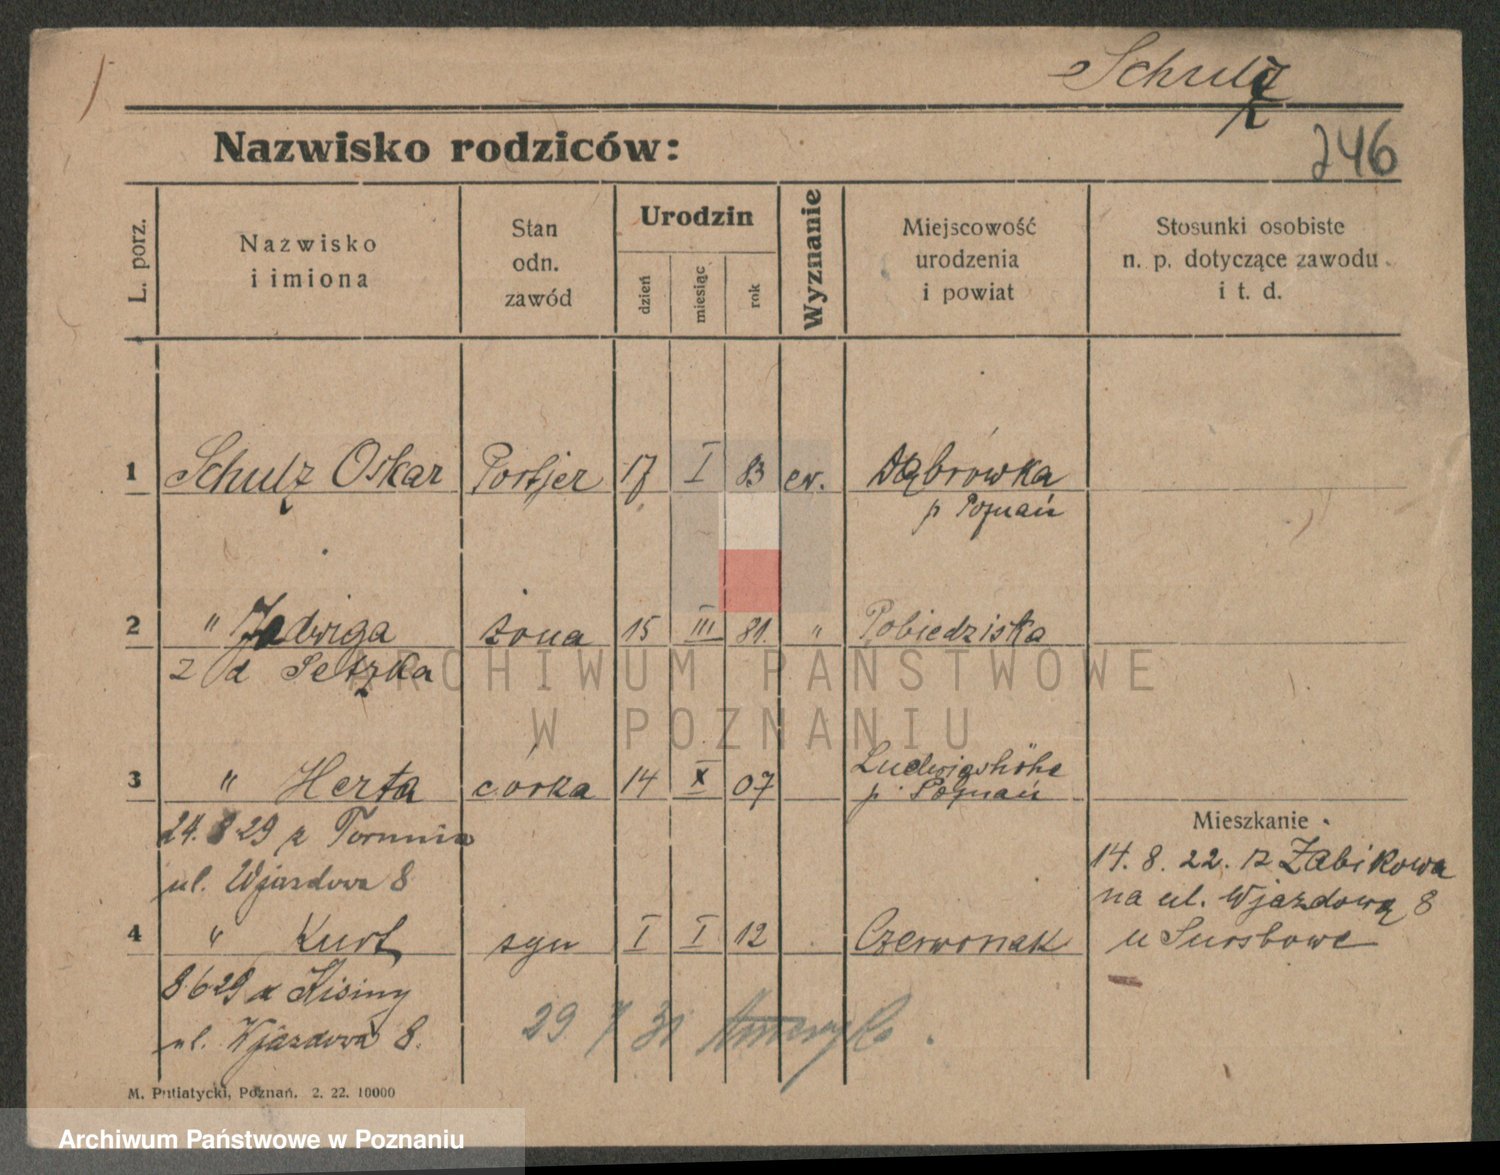 Schulz
246
Nazwisko rodziców:
L. porz.
Nazwisko
i imiona
Stan
odn.
zawód
Urodzin
dzień
miesiąc
rok
Wyznanie
Miejscowość
urodzenia
i powiat
Stosunki osobiste
n. p. dotyczące zawodu
i t. d.
1 Schulz Oskar Portjer 17 I 83 ew. Dąbrówka
p Poznań
2 " Jadwiga żona 15 III 81. " Pobiedziska
z d Petzka
3 " Herta córka 14 X 07 Ludwigshöhe
p. Poznań
24. 8 29 z Torunia
ul. Wjazdowa 8
Mieszkanie
14. 8. 22. z Żabikowa
na ul. Wjazdową 8
u
4 " Kurt syn I I 12 Czerwonak
8 6 29 z Kisiny
ul. Wjazdowa 8.
29 7 31
M. Putiatycki, Poznań. 2. 22. 10000
ARCHIWUM PAŃSTWOWE
W POZNANIU
Archiwum Państwowe w Poznaniu